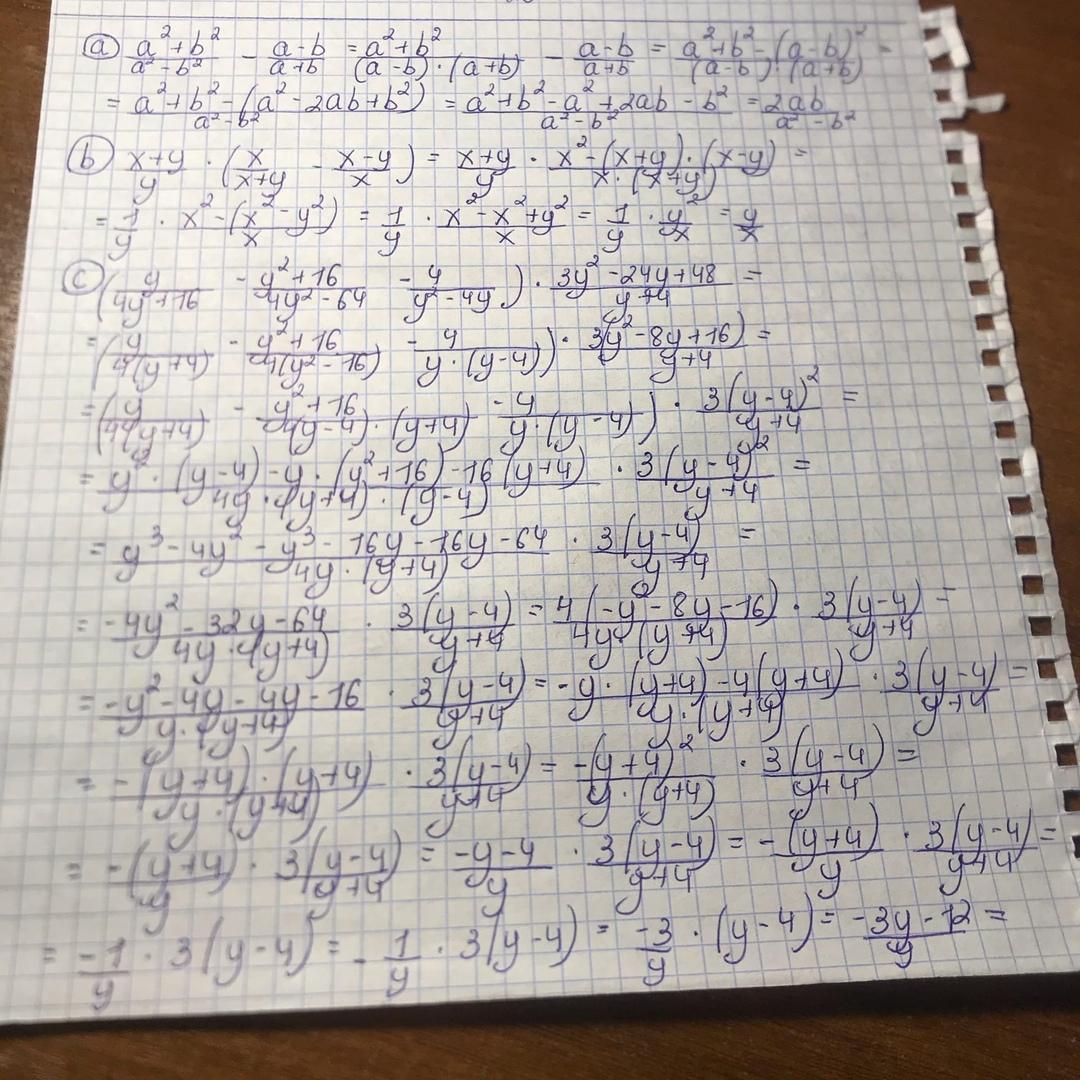 a) (a²+b²)/(a²-b²) - (a-b)/(a+b) = (a²+b²)/((a-b)·(a+b)) - (a-b)/(a+b) = (a²+b²-(a-b)²)/((a-b)·(a+b)) =
= (a²+b²-(a²-2ab+b²))/(a²-b²) = (a²+b²-a²+2ab-b²)/(a²-b²) = 2ab/(a²-b²)
b) (x+y)/y · (x/(x+y) - (x-y)/x) = (x+y)/y · (x²-(x+y)·(x-y))/(x·(x+y)) =
= 1/y · (x²-(x²-y²))/x = 1/y · (x²-x²+y²)/x = 1/y · y²/x = y/x
c) (y/(4y+16) - (y²+16)/(4y²-64) - 4/(y²-4y)) · (3y²-24y+48)/(y+4) =
= (y/(4(y+4)) - (y²+16)/(4(y²-16)) - 4/(y·(y-4))) · 3(y²-8y+16)/(y+4) =
= (y/(4(y+4)) - (y²+16)/(4(y-4)·(y+4)) - 4/(y·(y-4))) · 3(y-4)²/(y+4) =
= (y²·(y-4)-y·(y²+16)-16(y+4))/(4y·(y+4)·(y-4)) · 3(y-4)²/(y+4) =
= (y³-4y²-y³-16y-16y-64)/(4y·(y+4)) · 3(y-4)/(y+4) =
= (-4y²-32y-64)/(4y·(y+4)) · 3(y-4)/(y+4) = 4(-y²-8y-16)/(4y·(y+4)) · 3(y-4)/(y+4) =
= (-y²-4y-4y-16)/(y·(y+4)) · 3(y-4)/(y+4) = (-y·(y+4)-4(y+4))/(y·(y+4)) · 3(y-4)/(y+4) =
= -(y+4)·(y+4)/(y·(y+4)) · 3(y-4)/(y+4) = -(y+4)²/(y·(y+4)) · 3(y-4)/(y+4) =
= -(y+4)/y · 3(y-4)/(y+4) = (-y-4)/y · 3(y-4)/(y+4) = -(y+4)/y · 3(y-4)/(y+4) =
= -1/y · 3(y-4) = -1/y · 3(y-4) = -3/y · (y-4) = (-3y-12)/y =